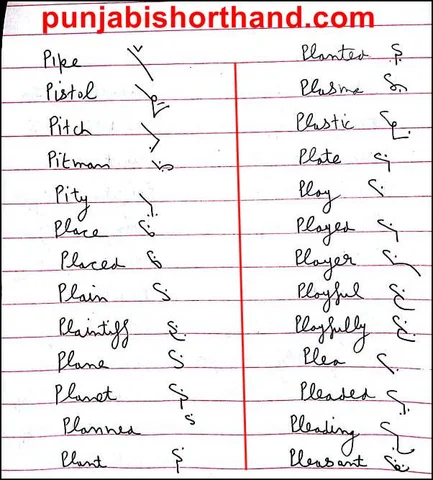 punjabishorthand.com
Pipe
Pistol
Pitch
Pitman
Pity
Place
Placed
Plain
Plaintiff
Plane
Planet
Planned
Plant
Planted
Plasma
Plastic
Plate
Play
Played
Player
Playful
Playfully
Plea
Pleaded
Pleading
Pleasant